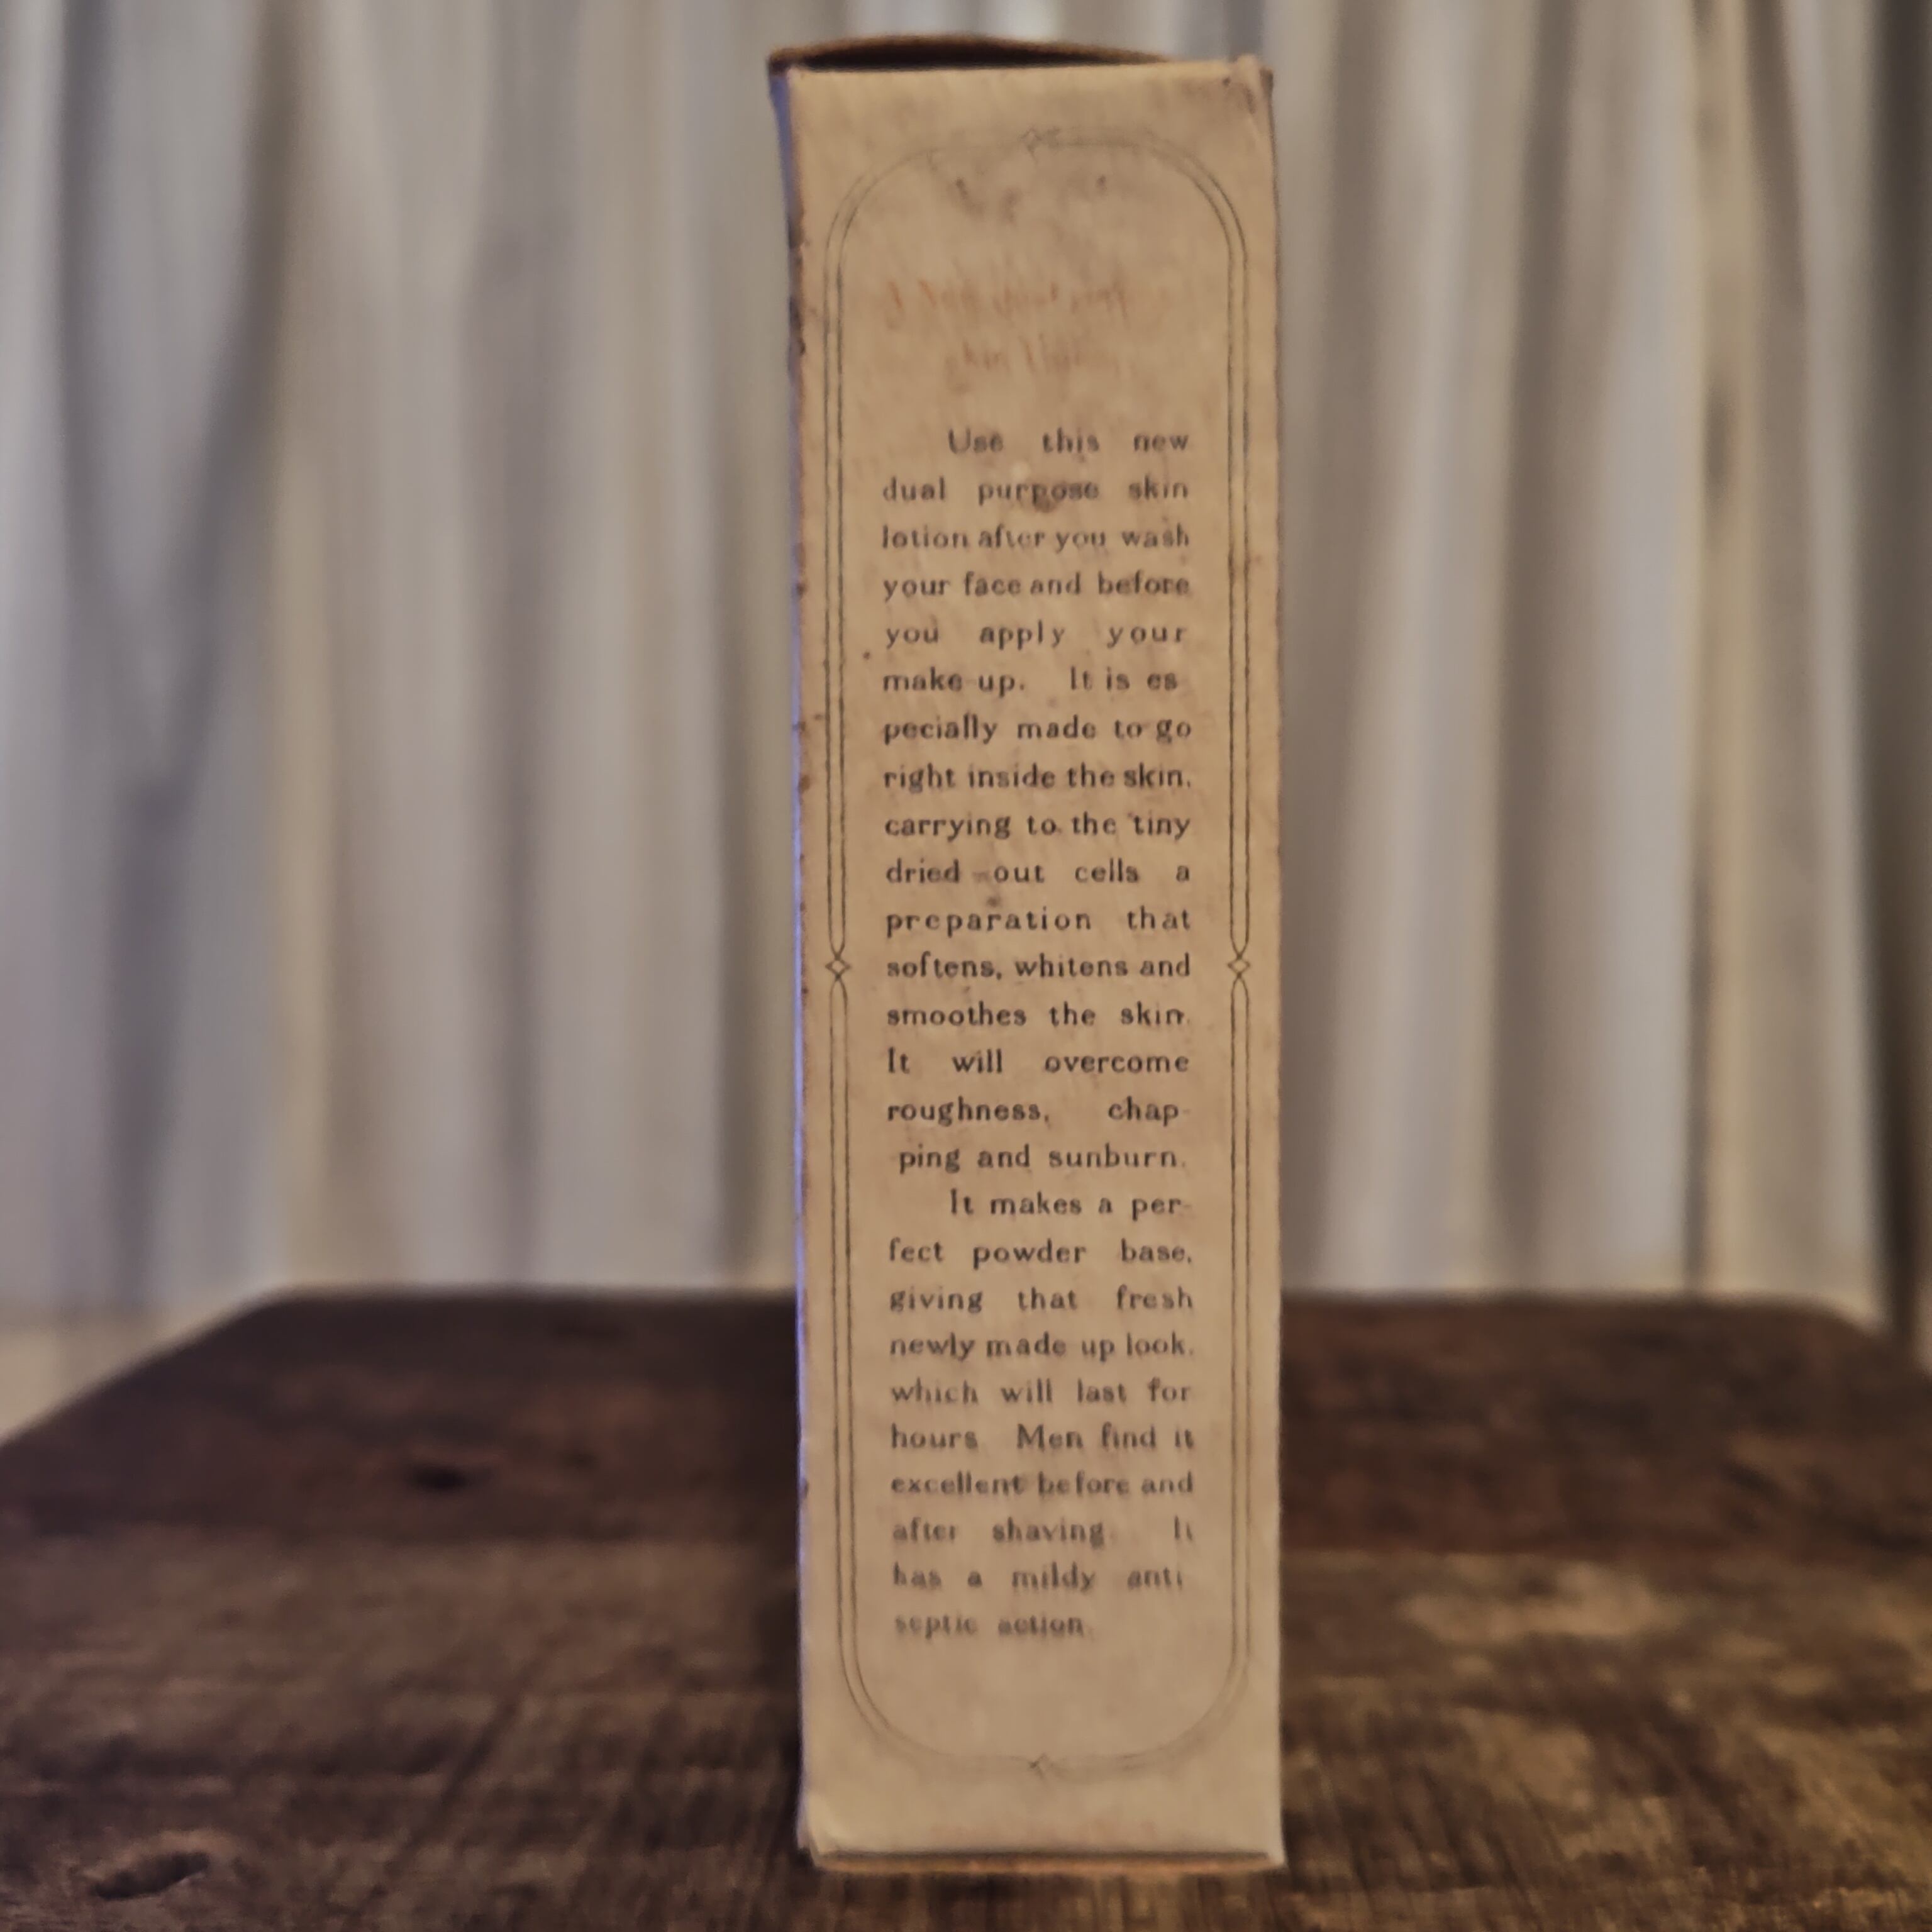 skin
Use this new
dual purpose skin
lotion after you wash
your face and before
you apply your
make-up. It is es
pecially made to go
right inside the skin,
carrying to the tiny
dried-out cells a
preparation that
softens, whitens and
smoothes the skin.
It will overcome
roughness, chap-
ping and sunburn.
It makes a per-
fect powder base,
giving that fresh
newly made up look,
which will last for
hours Men find it
excellent before and
after shaving. It
has a mildy anti
septic action.